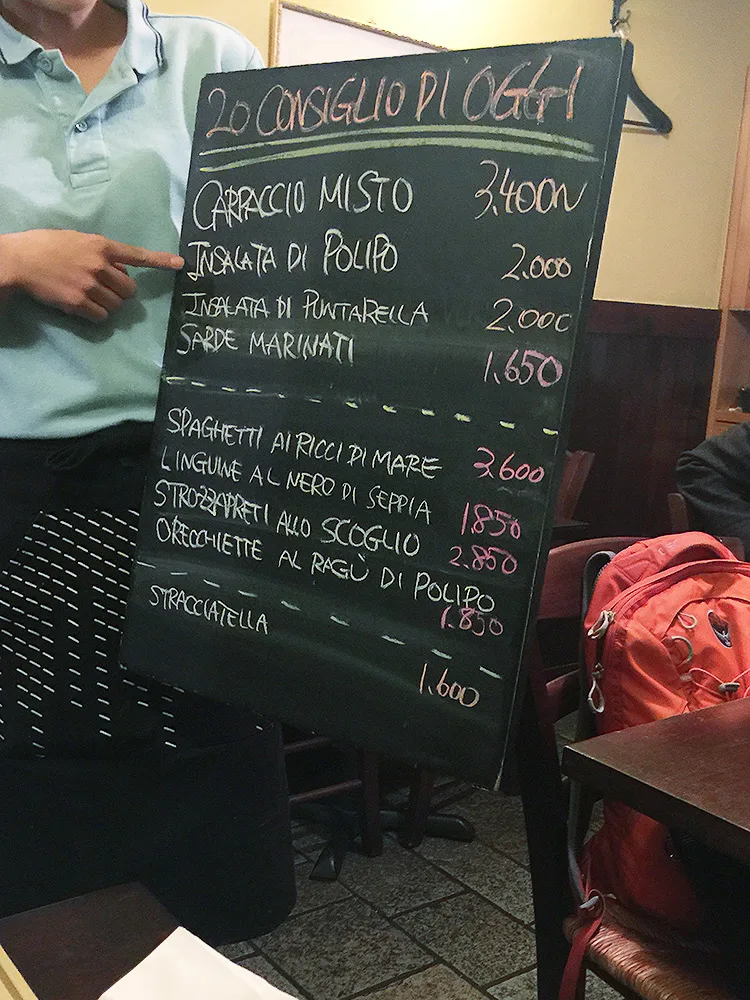 20 CONSIGLIO DI OGGI
CARPACCIO MISTO 3.400N
INSALATA DI POLIPO 2.000
INSALATA DI PUNTARELLA 2.000
SARDE MARINATI 1.650
SPAGHETTI AI RICCI DI MARE 3.600
LINGUINE AL NERO DI SEPPIA 1.850
STROZZAPRETI ALLO SCOGLIO 2.850
ORECCHIETTE AL RAGÙ DI POLIPO 1.850
STRACCIATELLA 1.600